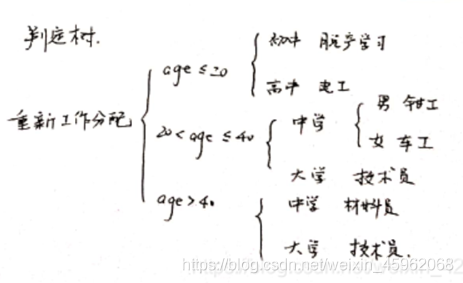 判定树.
重新工作分配
age ≤ 20
初中 脱产学习
高中 电工
20 < age ≤ 40
中学
男 钳工
女 车工
大学 技术员
age > 40
中学 材料员
大学 技术员.
https://blog.csdn.net/weixin_45962068